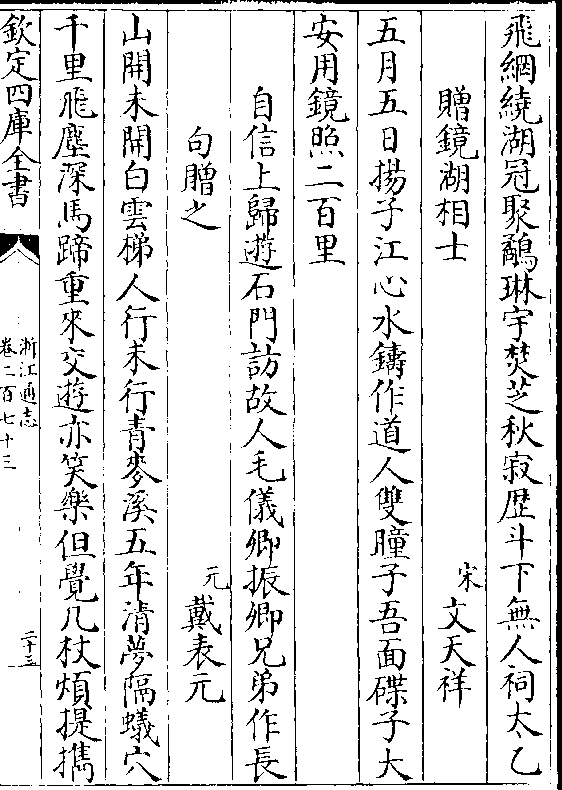 飛網繞湖冠聚鷸琳宇焚芝秋寂歴斗下無人祠太乙
贈鏡湖相士
宋文天祥
五月五日揚子江心水鑄作道人雙瞳子吾面碟子大
安用鏡照二百里
自信上歸遊石門訪故人毛儀卿振卿兄弟作長
句贈之
元戴表元
山開未開白雲梯人行未行青麥溪五年清夢隔蟻穴
千里飛塵深馬蹄重來交遊亦笑樂但覺几杖煩提擕
欽定四庫全書
浙江通志
卷二百七十三
二十三